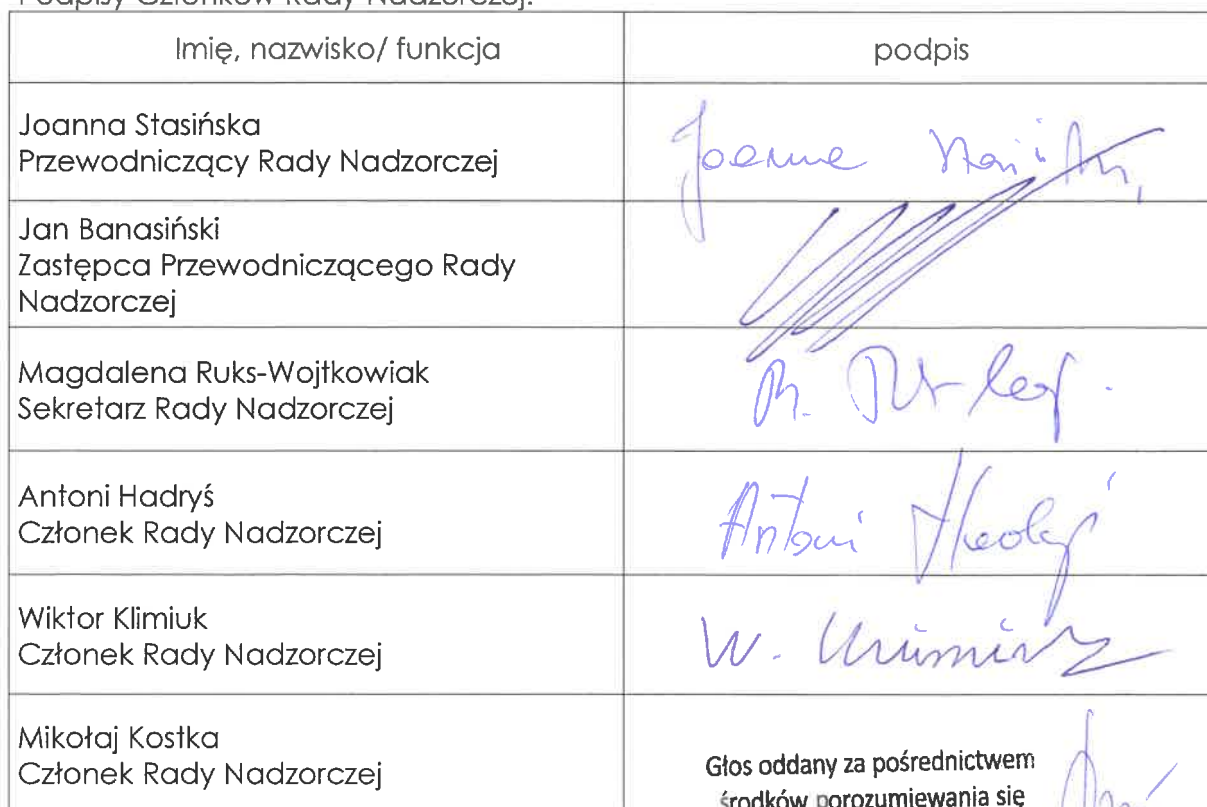 Podpisy Członków Rady Nadzorczej:
Imię, nazwisko/ funkcja
podpis
Joanna Stasińska
Przewodniczący Rady Nadzorczej
Joanna
Jan Banasiński
Zastępca Przewodniczącego Rady
Nadzorczej
Magdalena Ruks-Wojtkowiak
Sekretarz Rady Nadzorczej
M.
Antoni Hadryś
Członek Rady Nadzorczej
Antoni Hadryś
Wiktor Klimiuk
Członek Rady Nadzorczej
W. Klimiuk
Mikołaj Kostka
Członek Rady Nadzorczej
Głos oddany za pośrednictwem
środków porozumiewania się